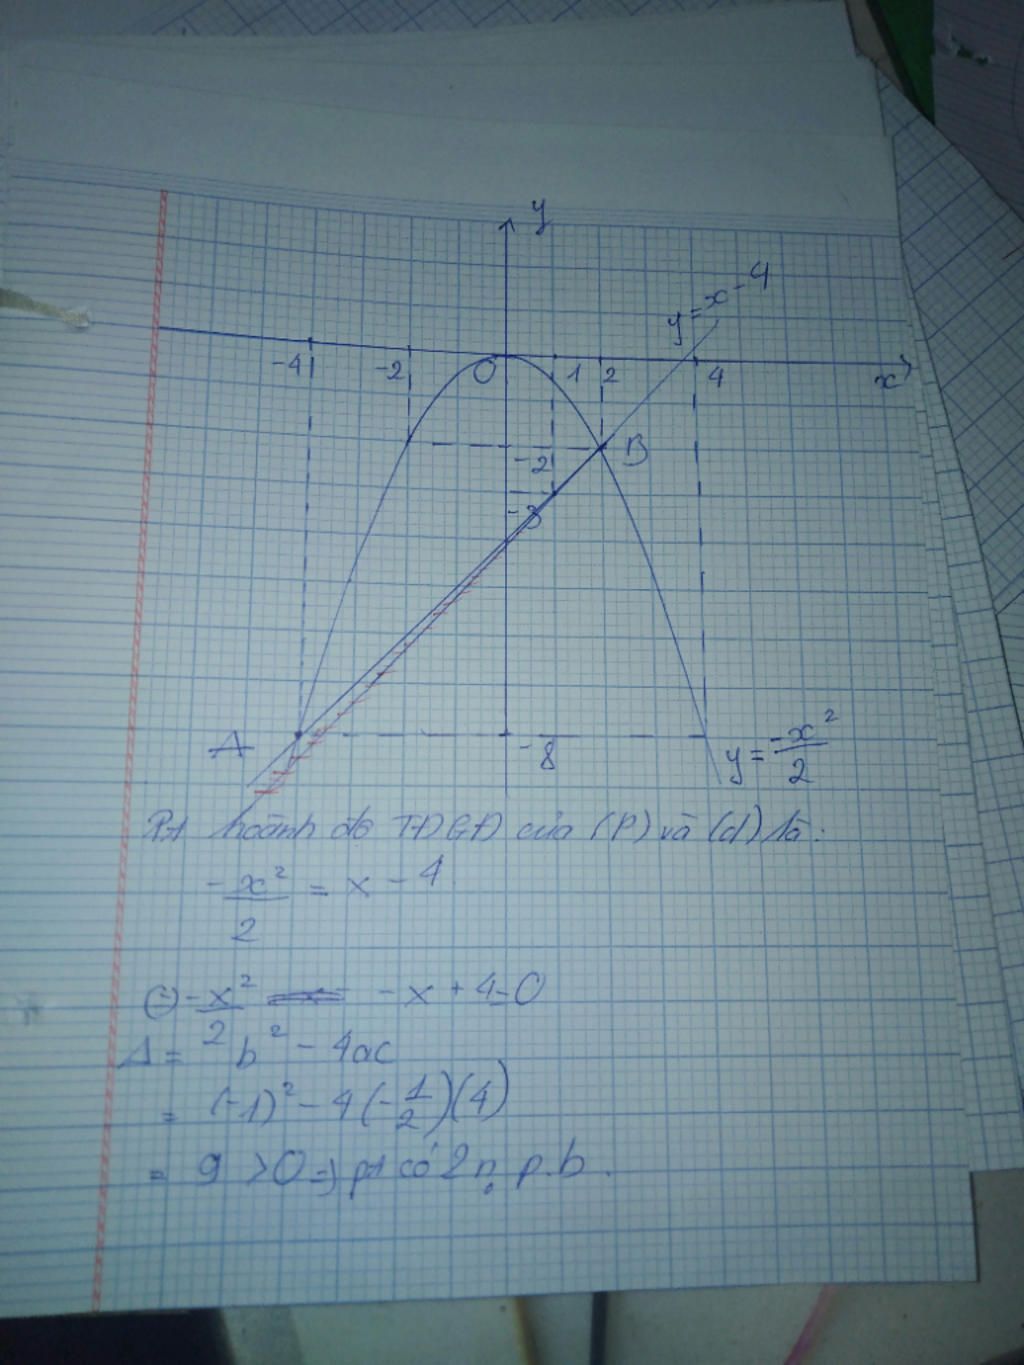 y
y = x - 4
-4 -2 O 1 2 4 x
-2 B
-3
A -8 y = -x²/2
Pt hoành độ TĐGĐ của (P) và (d) là:
-x²/2 = x - 4
⇔ -x²/2 - x + 4 = 0
Δ = b² - 4ac
= (-1)² - 4(-1/2)(4)
= 9 > 0 ⇒ pt có 2 n₀ p.b.